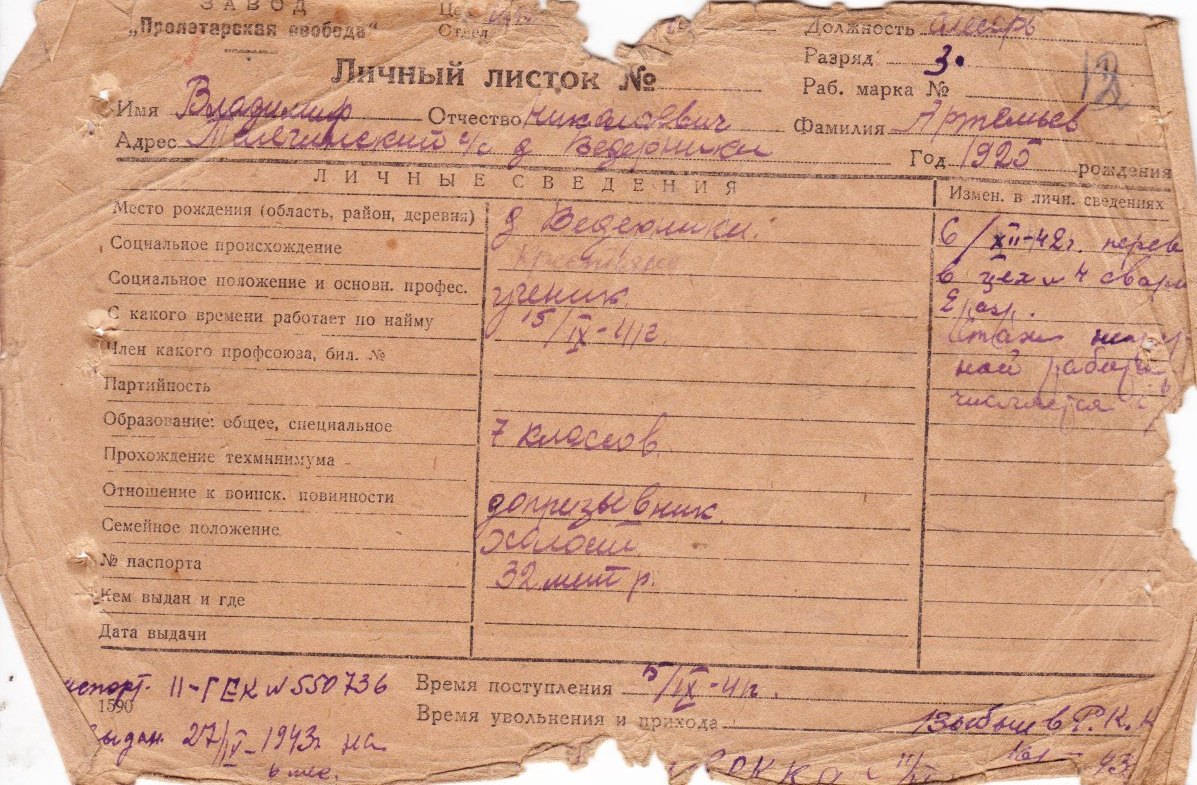 ЗАВОД
„Пролетарская свобода“
Отдел
Должность слесарь
Разряд 3.
Личный листок №
Раб. марка №
Имя Владимир Отчество Николаевич Фамилия Артемьев
Адрес д Ведерники Год 1925 рождения
ЛИЧНЫЕ СВЕДЕНИЯ
Измен. в личн. сведениях
Место рождения (область, район, деревня) д Ведерники.
6/XII-42г. перев
Социальное происхождение
в цех № 4 свар
Социальное положение и основн. профес. ученик.
С какого времени работает по найму 15/IX-41г.
Стаж
Член какого профсоюза, бил. №
ной работы
Партийность
числится
Образование: общее, специальное 7 классов.
Прохождение техминимума
Отношение к воинск. повинности допризывник.
Семейное положение холост
№ паспорта
Кем выдан и где
Дата выдачи
II-ГЕК № 550736
Время поступления 15/IX-41г.
1590
Время увольнения и прихода
27/IV-1943г на
6 мес.